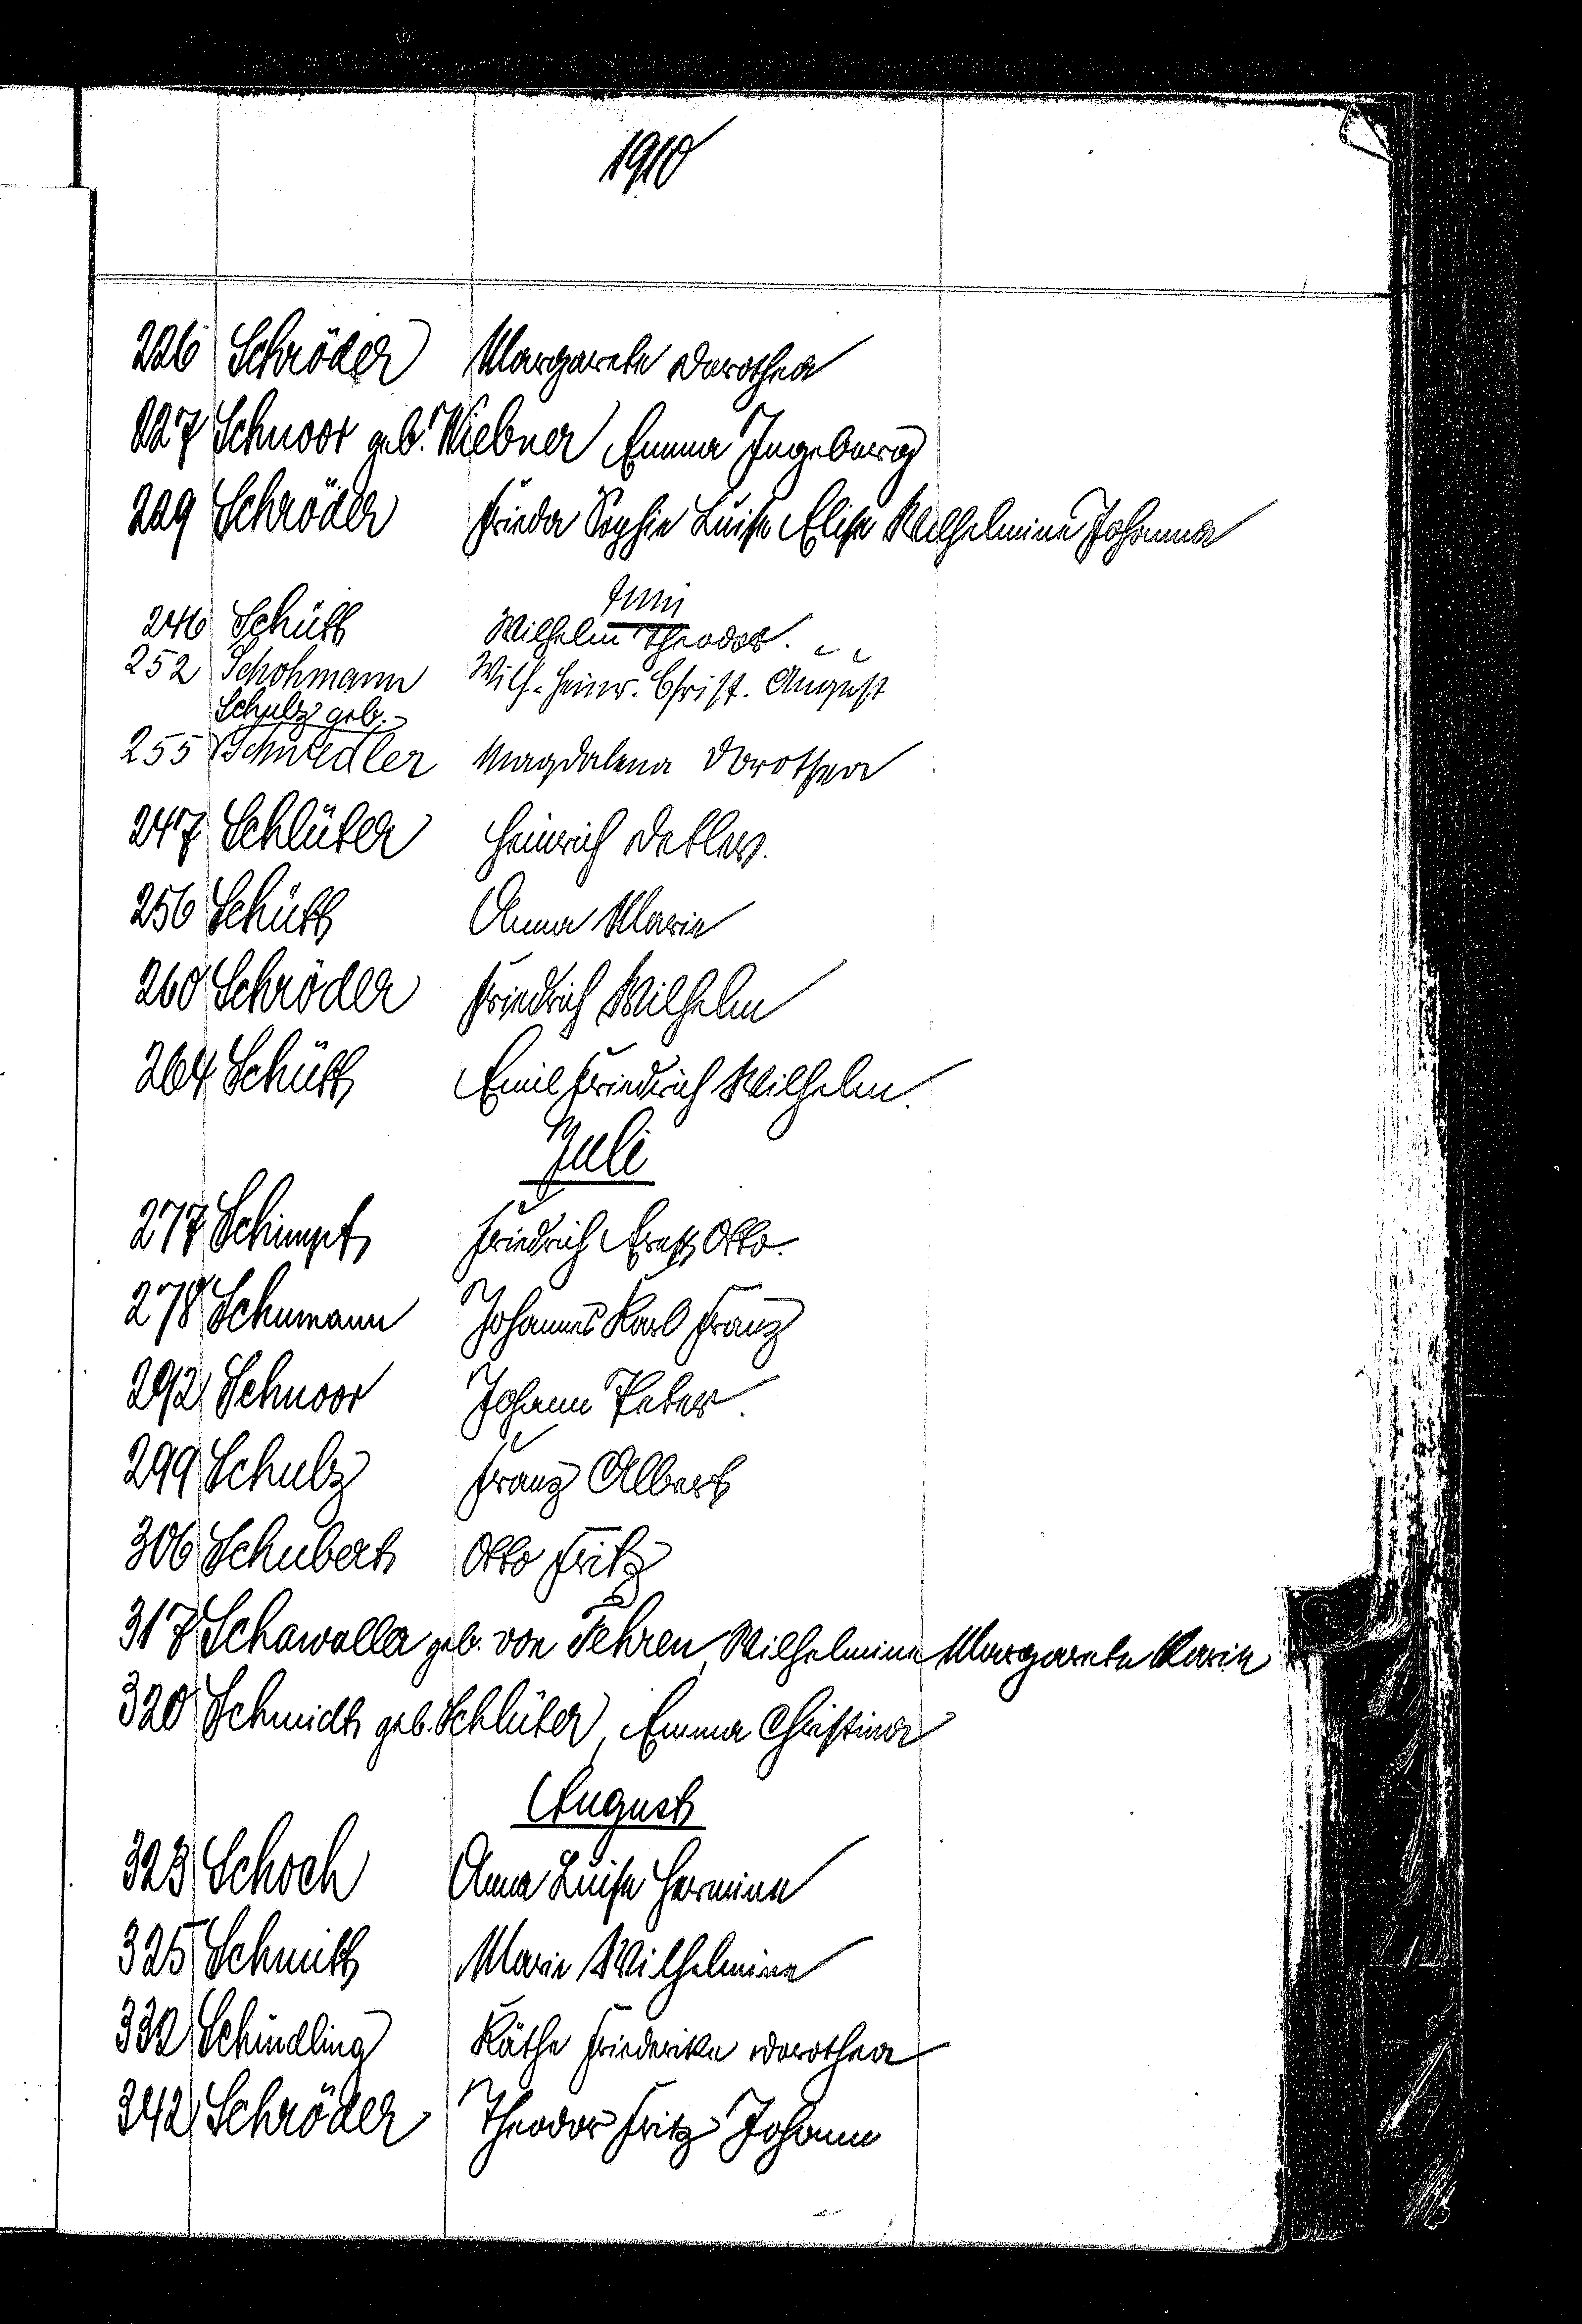 1910
226 Schröder Margarete Dorothea
227 Schnoor geb. Wiebner Emma Ingeborg
229 Schröder Frieda Sophie Luise Elise Wilhelmine Johanna
Juni
246 Schütt Wilhelm Theodor.
252 Schohmann Wilh. Heinr. Christ. August
Schulz geb.
255 Schwedler Magdalena Dorothea
247 Schlüter Heinrich Detlev.
256 Schütt Anna Marie
260 Schröder Friedrich Wilhelm
264 Schütt Emil Friedrich Wilhelm.
Juli
277 Schimpf Friedrich Ernst Otto.
278 Schumann Johannes Karl Franz
292 Schnoor Johann Peter.
299 Schulz Franz Albert
306 Schubert Otto Fritz
317 Schawaller geb. von Fehren, Wilhelmine Margarete Marie
320 Schmidt geb. Schlüter, Emma Christina
August
323 Schoch Anna Luise Hermine
325 Schmitt Marie Wilhelmine
332 Schindling Käthe Friederike Dorothea
342 Schröder Theodor Fritz Johann